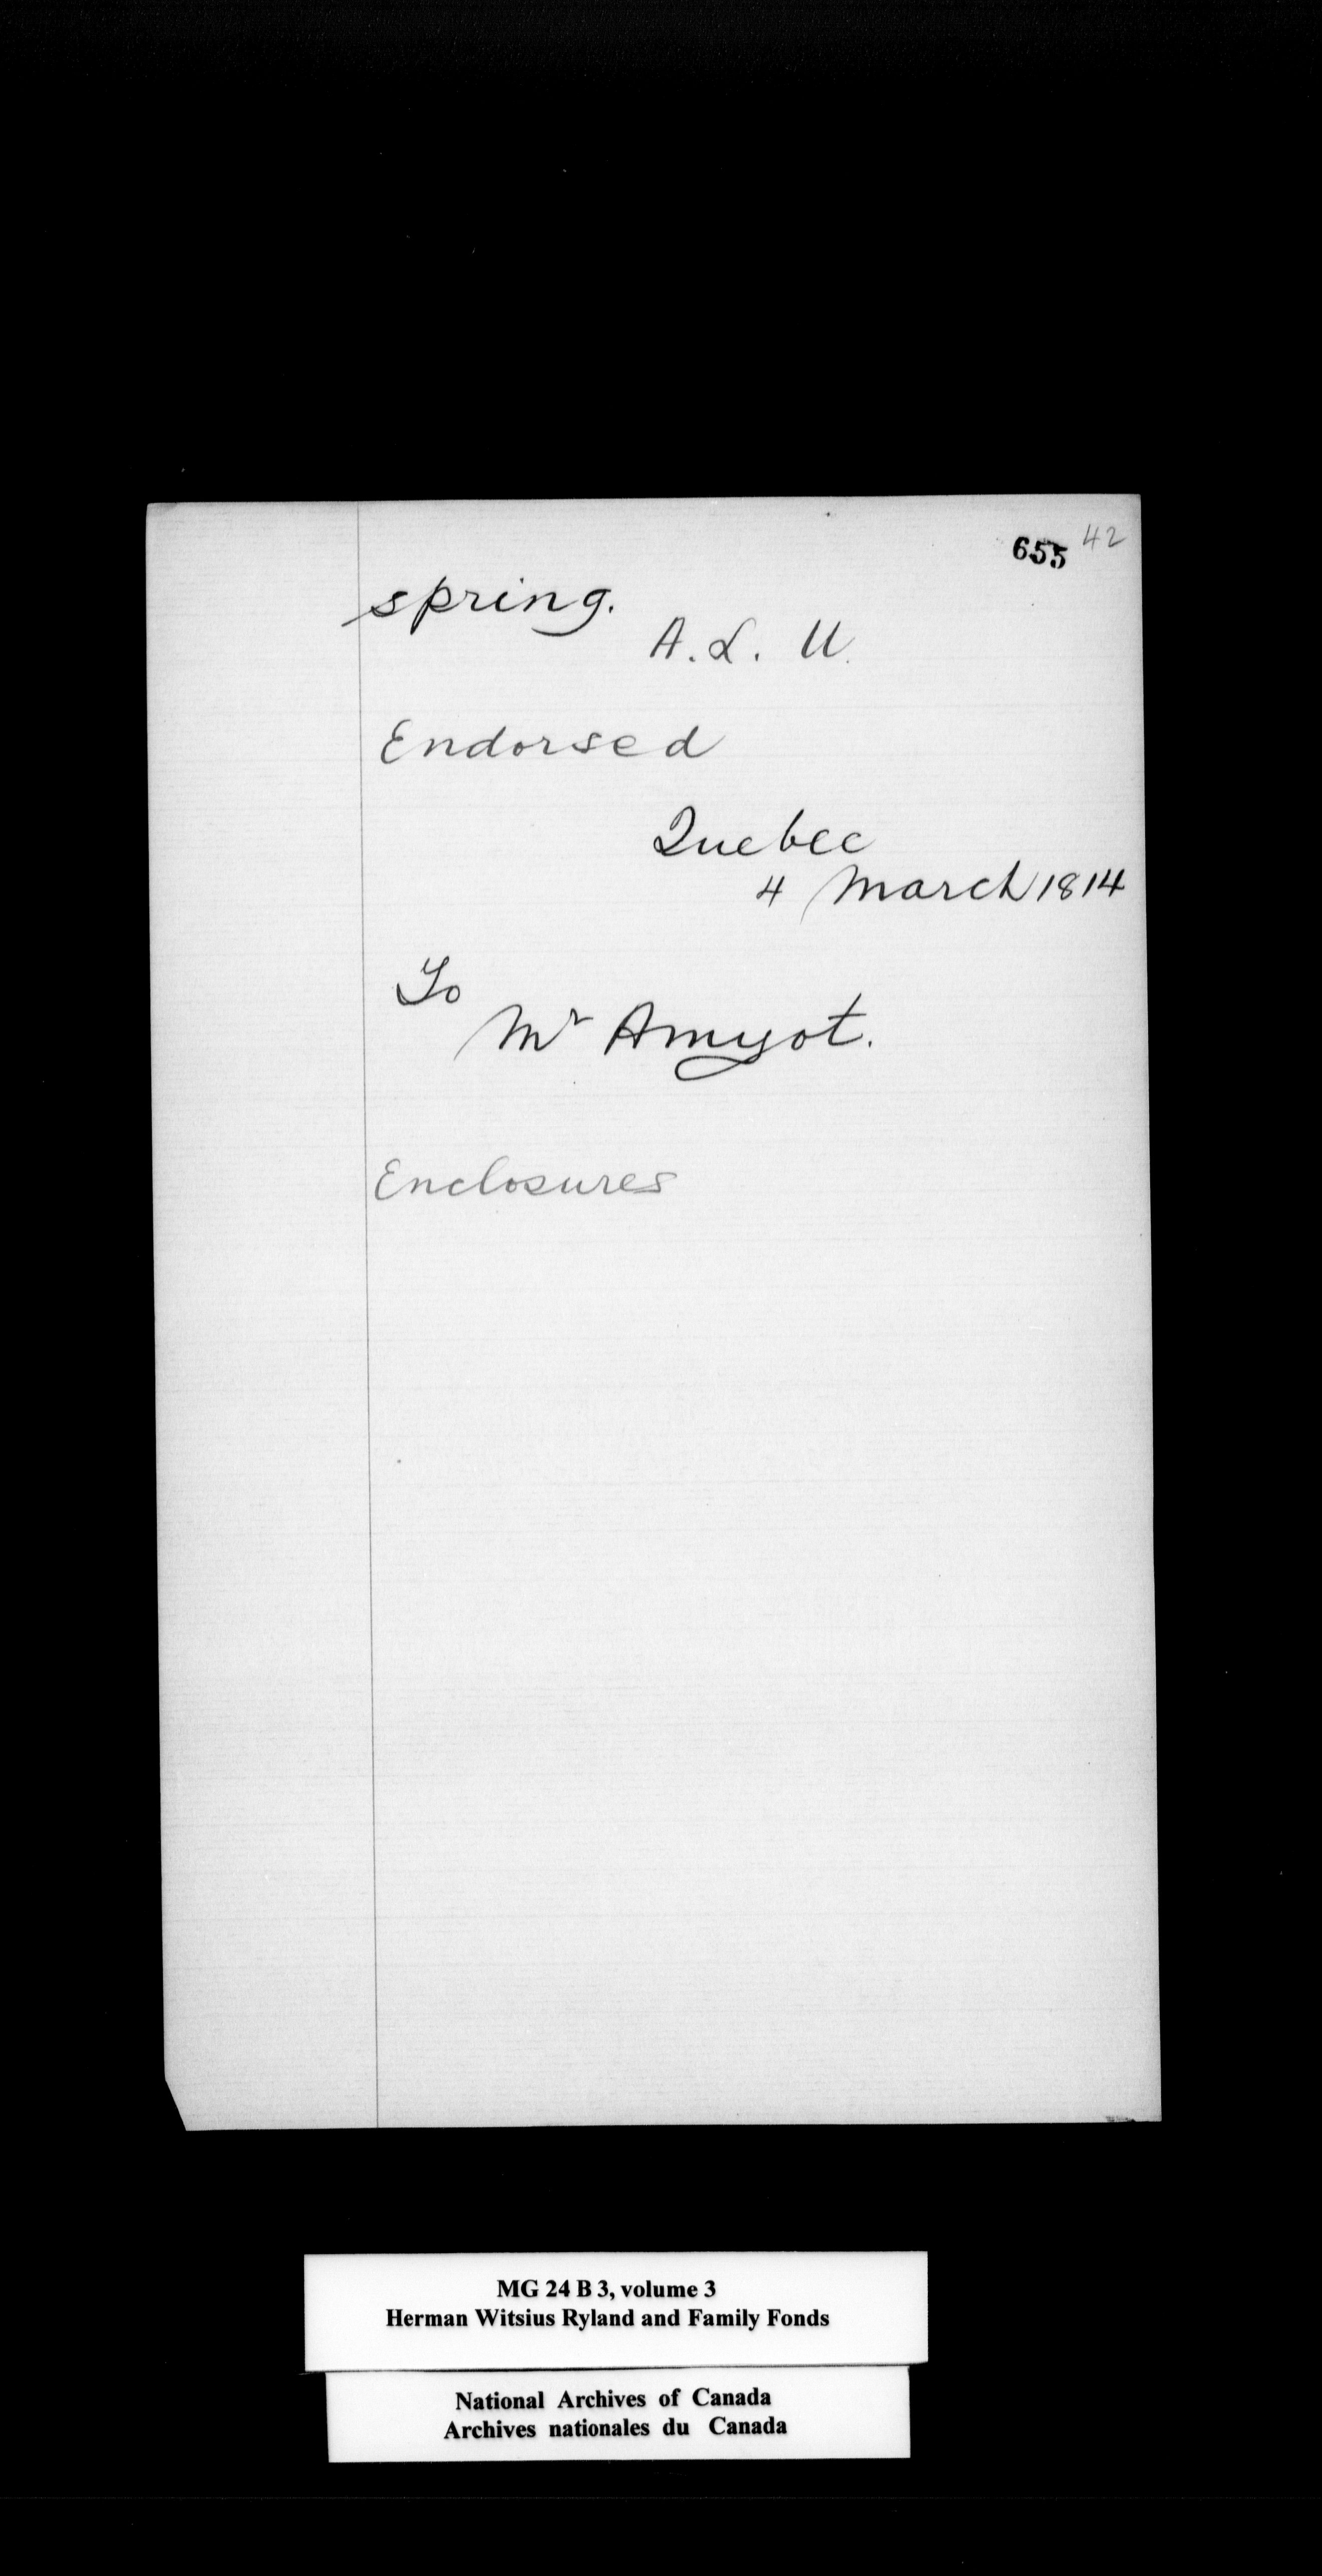 655 42
spring.
A. L. U.
Endorsed
Quebec
4 March 1814
To
Mr Amyot.
Enclosures
MG 24 B 3, volume 3
Herman Witsius Ryland and Family Fonds
National Archives of Canada
Archives nationales du Canada